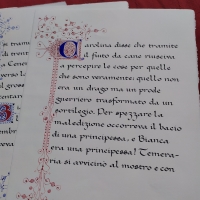 Carolina disse che tramite
il fiuto da cane riusciva
a percepire le cose per quelle
che sono veramente: quello non
era un drago ma un prode
guerriero trasformato da un
sortilegio. Per spezzare la
maledizione occorreva il bacio
di una principessa, e Bianca
era una principessa! Temera-
ria si avvicinò al mostro e con